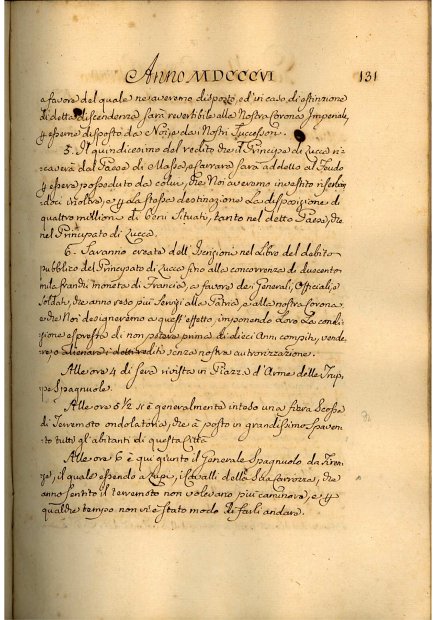 Anno MDCCCVI 131
a favore del quale ne averemo disposto, ed in caso di estinzione
di detta discendenza sarà revertibile alla Nostra Corona Imperiale,
esserne disposto da Noi, e da i Nostri Successori.
5. Il quindicesimo del redito che il Principe di Lucca ri-
caverà dal Paese di Massa, e Carrara sarà addetto al Feudo
esser posseduto da colui, che Noi averemo investito riserban
doci inoltre, e la stessa destinazione la disposizione di
quattro millioni di Beni situati, tanto nel detto Paese, che
nel Principato di Lucca.
6. Saranno create dell'Iscrizioni nel Libro del debito
pubblico del Principato di Lucca fino alla concorrenza di duecento
mila franchi moneta di Francia, a favore dei Generali, Officiali, e
Soldati, che anno reso più Servizi alla Patria, e alla nostra Corona,
e che Noi designeremo a quest'effetto, imponendo loro la condi
zione espressa di non potere prima di dieci Anni compiti, vende
re, o alienare i detti redditi senza nostra autorizzazione.
Alle ore 4 di sera rivista in Piazza d'Arme delle Trup
pe Spagnuole.
Alle ore 5 1/2 si è generalmente inteso una fiera Scossa
di Terremoto ondolatoria, che à posto in grandissimo spaven
to tutti gl'abitanti di questa Città.
Alle ore 6 è qui giunto il Generale Spagnuolo da Firen
ze, il quale essendo a i Cavalli della Sua Carrozza, che
anno sentito il terremoto non volevano più caminare, e
qualche tempo non vi è stato modo di farli andare.